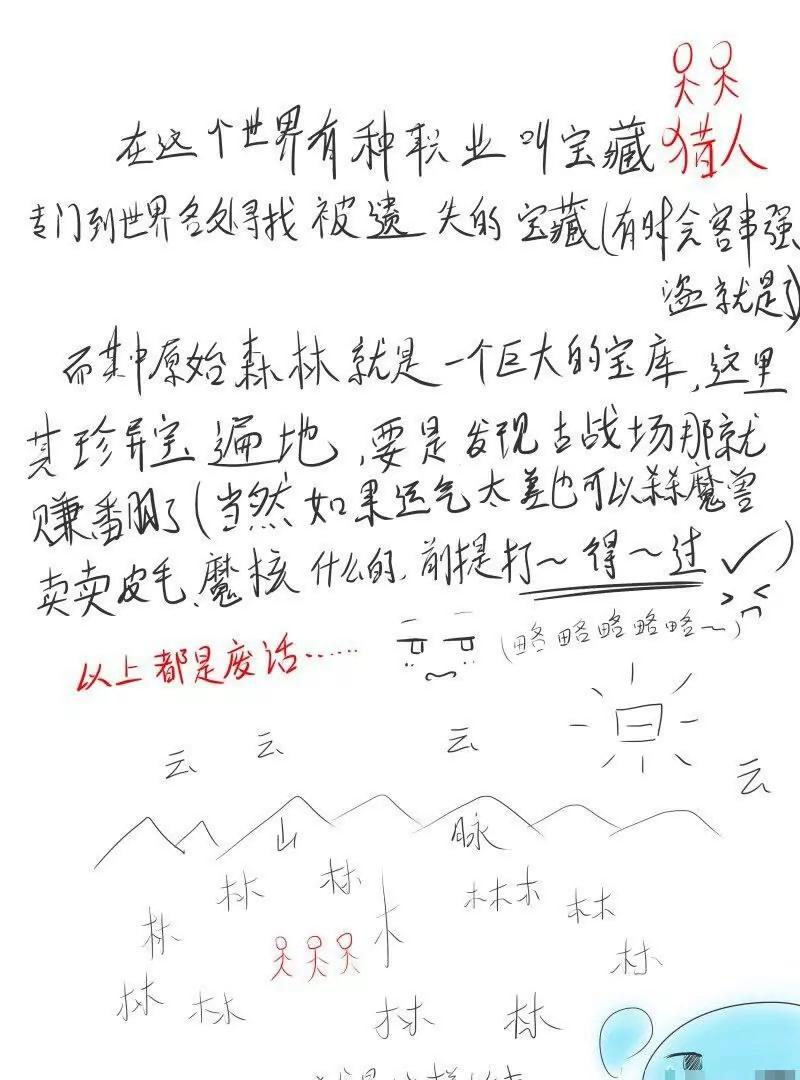 在这个世界有种职业叫宝藏猎人
专门到世界各处寻找被遗失的宝藏(有时会客串强
盗就是了)
而其中原始森林就是一个巨大的宝库,这里
其珍异宝遍地,要是发现古战场那就
赚番脚了(当然如果运气太差也可以杀杀魔兽
卖卖皮毛、魔核什么的,前提打~得~过✓)
(略略略略略~)
以上都是废话……
日
云 云 云 云
山 脉
林 林 林林 林林
林 呆呆呆 木 林
林 林林 林 林